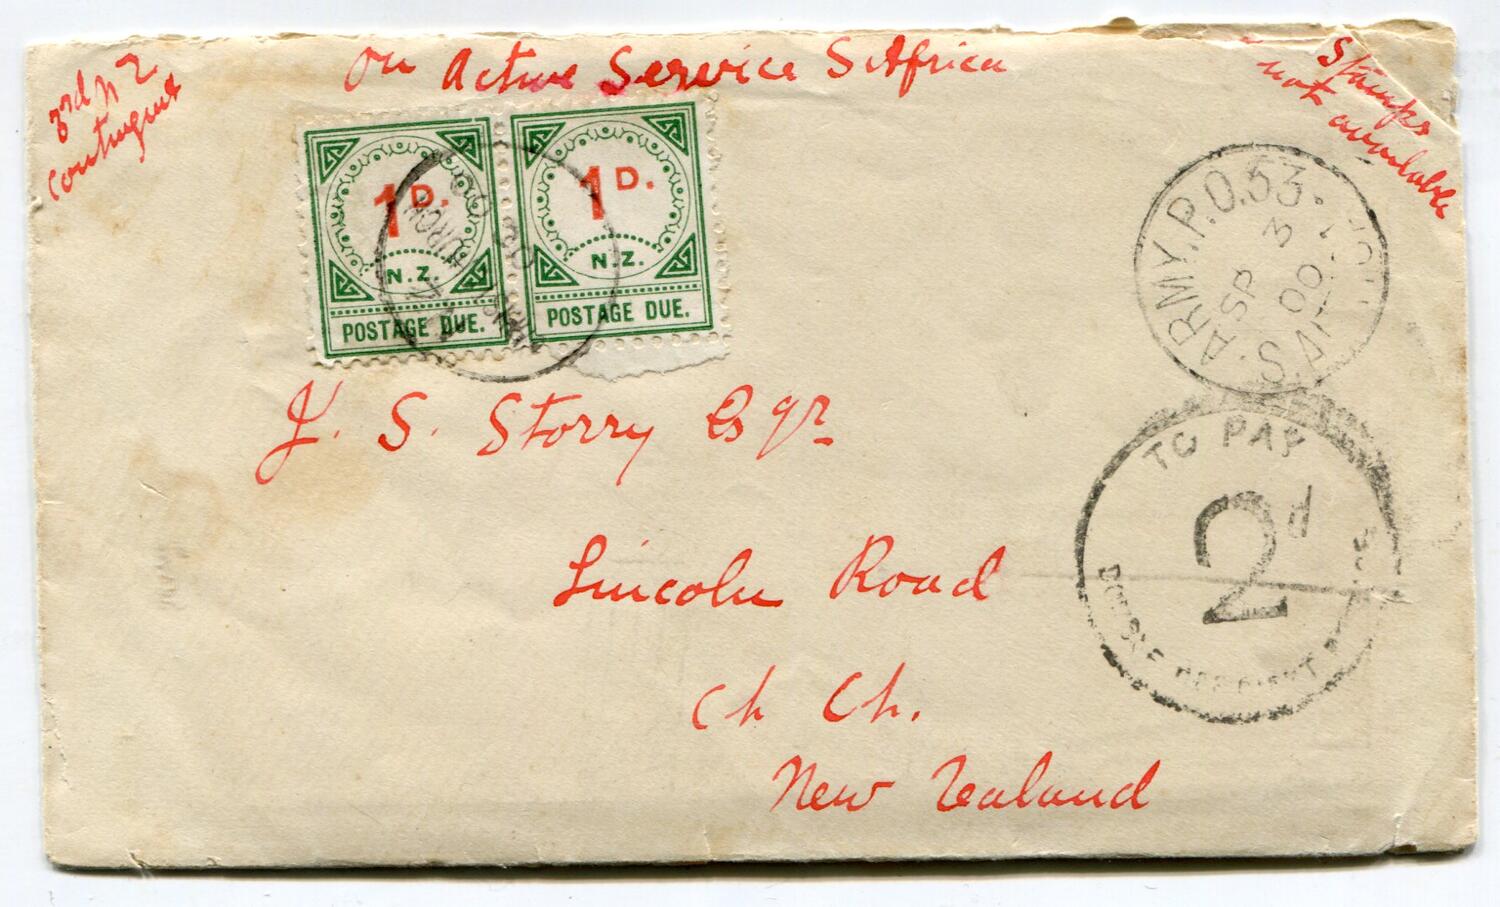 3rd N Z
Contingent
On Active Service S Africa
Stamps
not available
1D.
N.Z.
POSTAGE DUE.
1D.
N.Z.
POSTAGE DUE.
ARMY.P.O.53.
SP
3
00
S.
J. S. Storry Esqr
Lincoln Road
Ch Ch.
New Zealand
TO PAY
2d